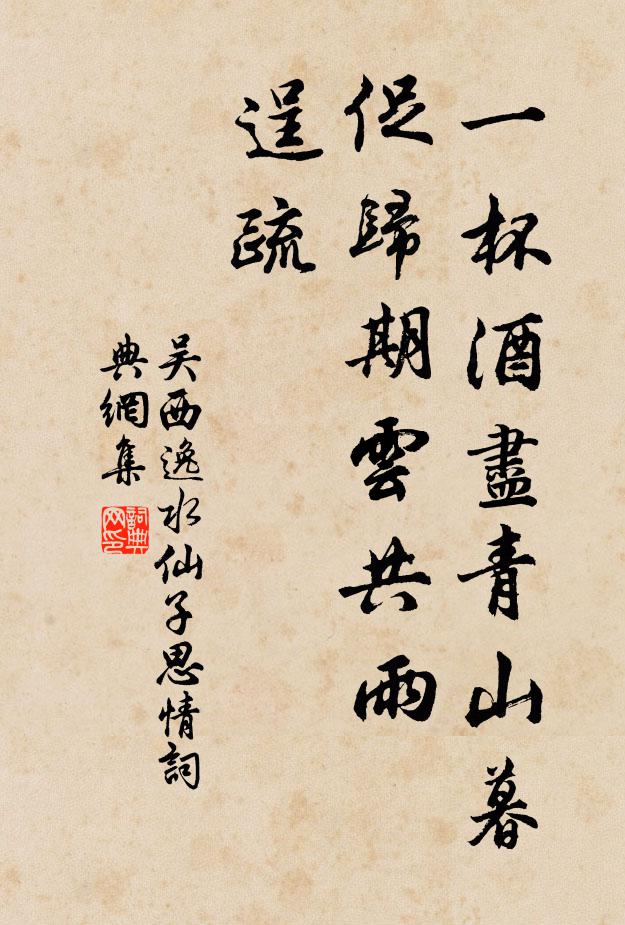 一杯酒盡青山暮
促歸期雲共雨
逞疏
吴西逸水仙子思情詞
典網集
詞典
网印